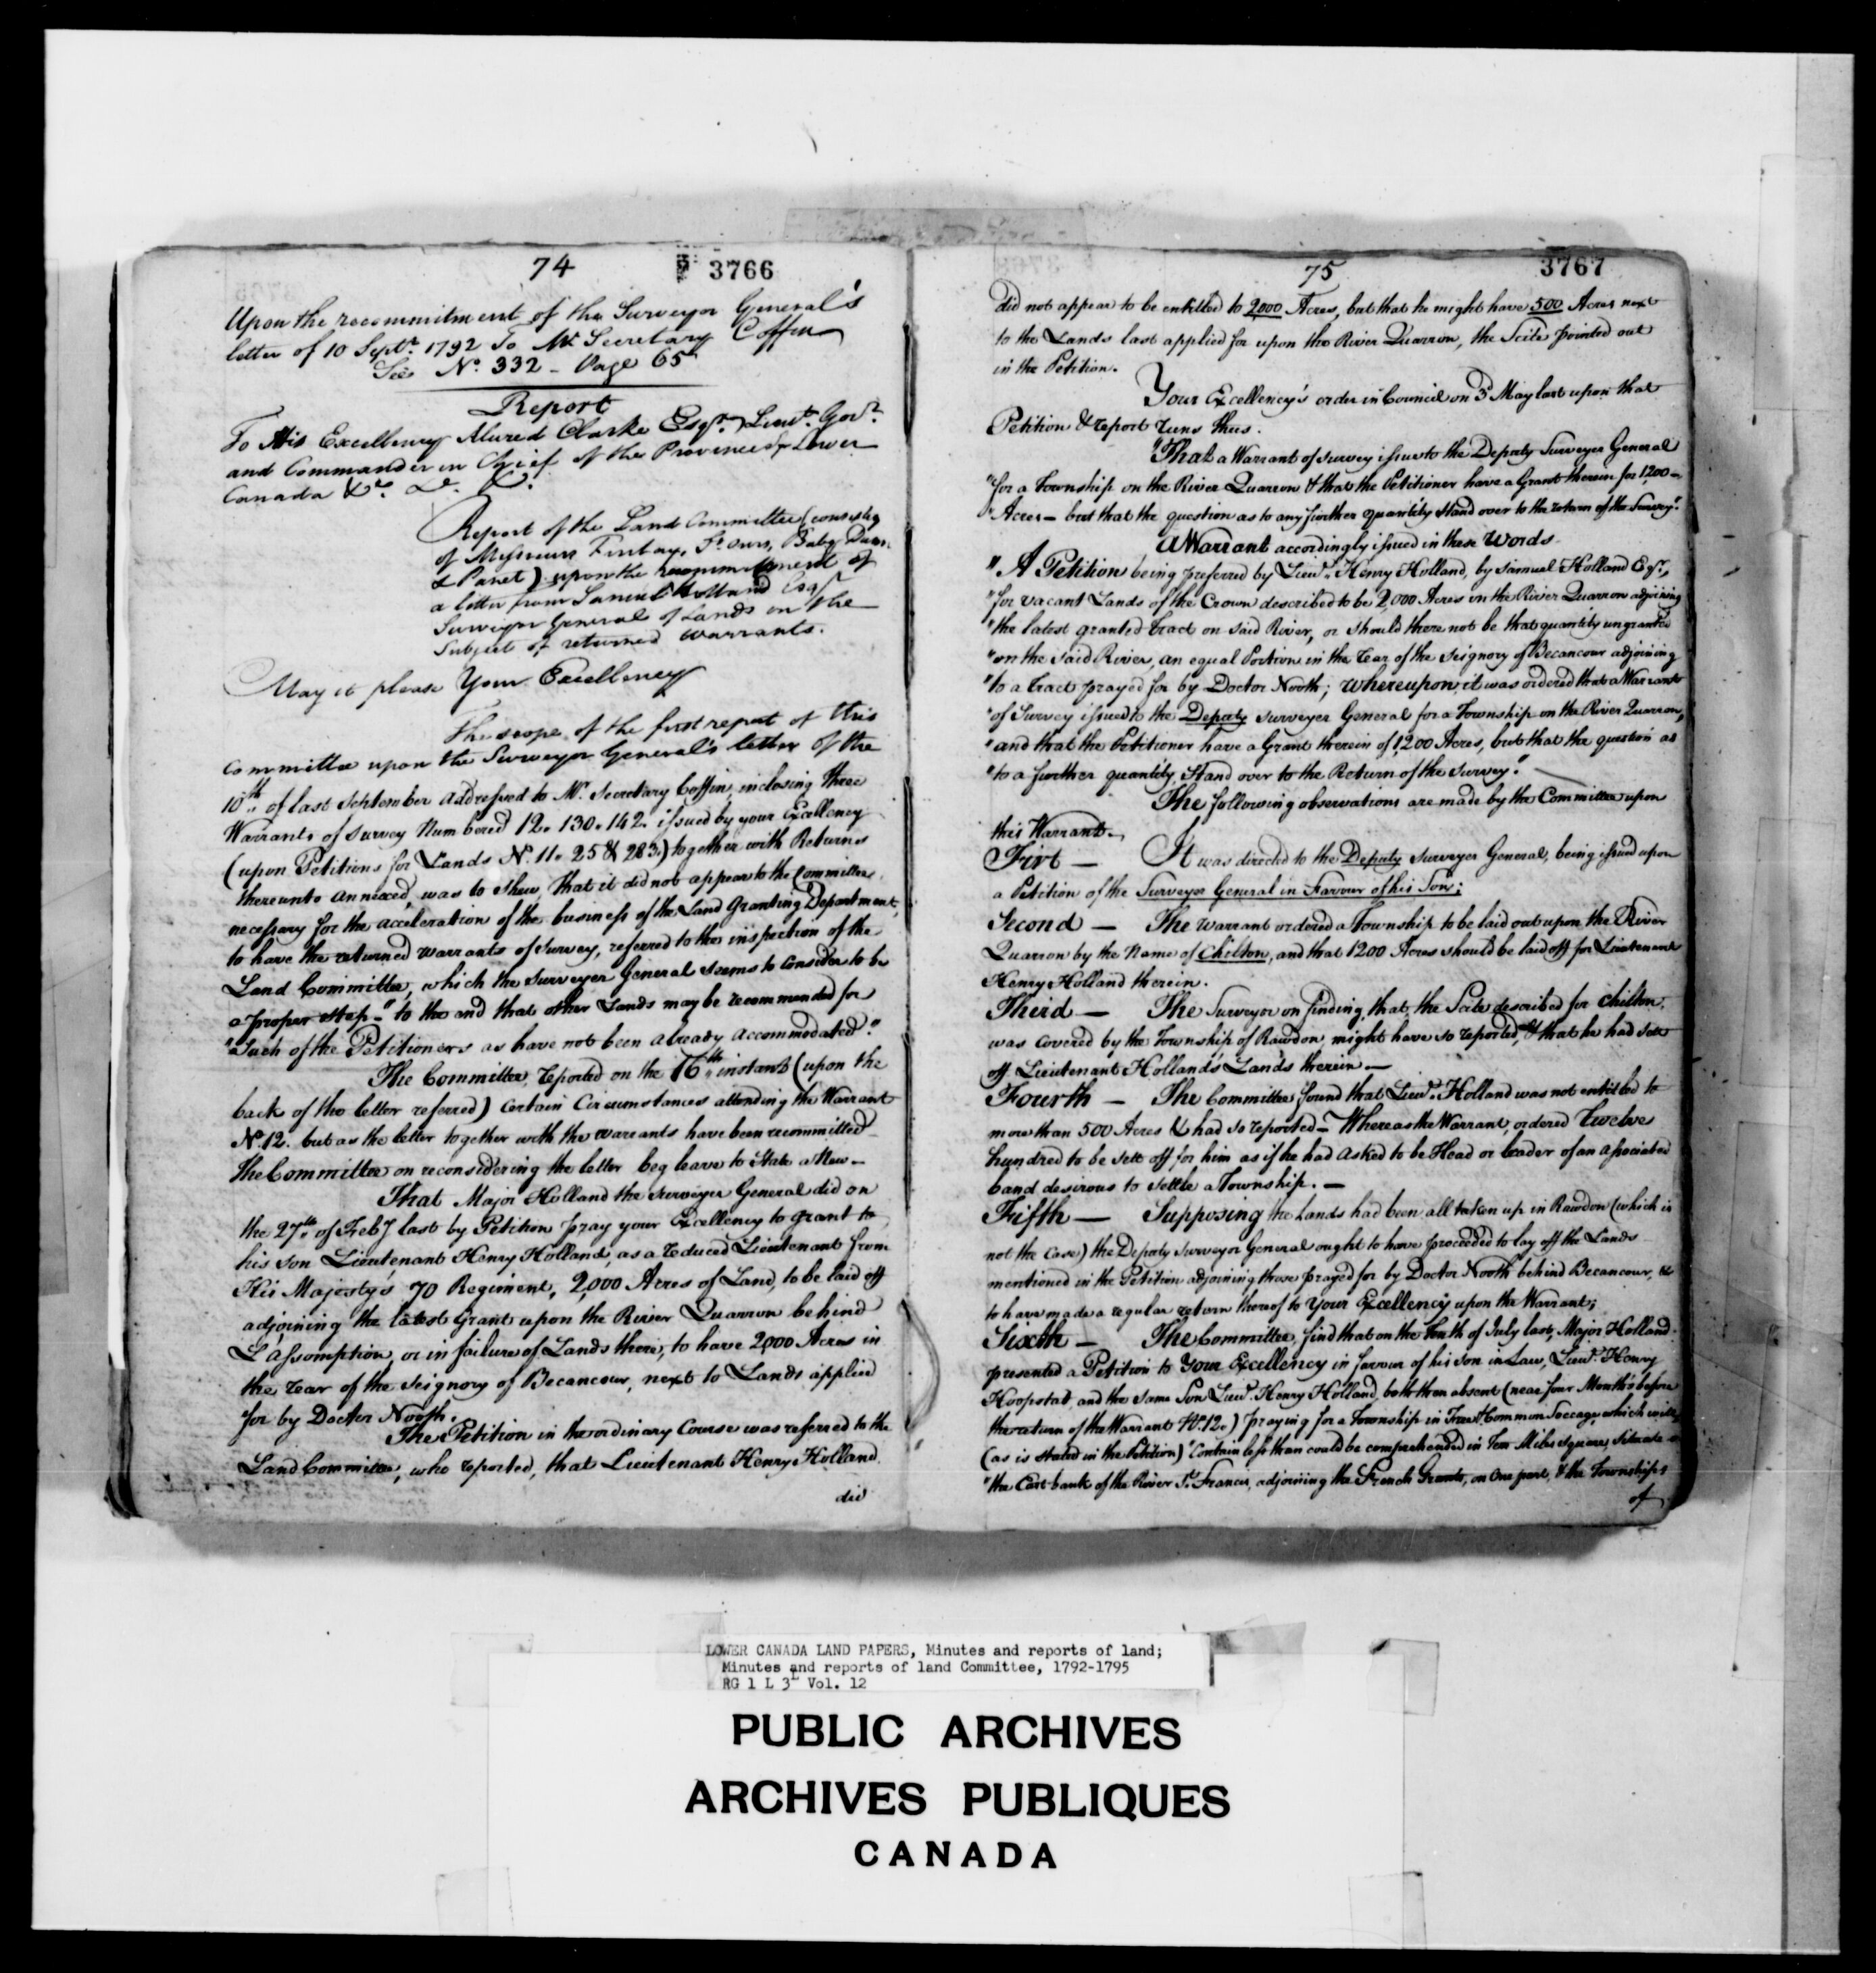 74
3766
Upon the recommitment of the Surveyor General's
letter of 10 Septr. 1792 To Mr. Secretary Coffin
See No. 332 - Page 65
Report
To His Excellency Alured Clarke Esqr. Lieut. Govr.
and Commander in Chief of the Province of Lower
Canada &c. &c. &c.
Report of the Land Committee (consisting
of Messieurs Finlay, St. Ours, Baby Dunn
& Panet) upon the recommitment of
a letter from Samuel Holland Esqr
Surveyor General of Lands on the
Subject of returned Warrants.
May it please Your Excellency
The scope of the first report of this
Committee upon the Surveyor General's letter of the
10th. of last September addressed to Mr. Secretary Coffin, inclosing three
Warrants of Survey Numbered 12. 130. 142. issued by your Excellency
(upon Petitions for Lands No. 11. 25 & 283.) together with Returns
thereunto annexed, was to shew, That it did not appear to the Committee
necessary for the acceleration of the business of the Land Granting Department,
to have the returned warrants of Survey, referred to the inspection of the
Land Committee, which the Surveyor General seems to consider to be
a proper step - "to the end that other Lands may be recommended for
"Such of the Petitioners as have not been already accommodated."
The Committee, reported on the 16th. instant (upon the
back of the letter referred) certain Circumstances attending the Warrant
No. 12. but as the letter together with the warrants have been recommitted
The Committee on reconsidering the letter beg leave to State anew -
That Major Holland the Surveyor General did on
the 27th. of Feby last by Petition pray your Excellency to grant to
his son Lieutenant Henry Holland, as a reduced Lieutenant from
His Majesty's 70 Regiment, 2,000 Acres of Land, to be laid off
adjoining the latest Grant upon the River Quarron behind
L'assomption, or in failure of Lands there, to have 2,000 Acres in
the rear of the Seignory of Becancour, next to Lands applied
for by Doctor Nooth.
The Petition in the ordinary Course was referred to the
Land Committee, who reported, that Lieutenant Henry Holland
did
75
3767
did not appear to be entitled to 2,000 Acres, but that he might have 500 Acres next
to the Lands last applied for upon the River Quarron, the Scite pointed out
in the Petition.
Your Excellency's order in Council on 3d May last upon that
Petition & report runs thus.
"That a Warrant of Survey issue to the Deputy Surveyor General
"for a Township on the River Quarron & that the Petitioner have a Grant therein for 1,200 -
"Acres - but that the question as to any further quantity stand over to the return of the Survey."
A Warrant accordingly issued in these Words
"A Petition being preferred by Lieut. Henry Holland, by Samuel Holland Esqr.,
"for vacant Lands of the Crown described to be 2,000 Acres on the River Quarron adjoining
"the latest granted tract on said River, or should there not be that quantity ungranted
"on the said River, an equal Portion in the rear of the Seignory of Becancour adjoining
"to a tract prayed for by Doctor Nooth; Whereupon it was ordered that a Warrant
"of Survey issued to the Deputy Surveyor General for a Township on the River Quarron,
"and that the Petitioner have a Grant therein of 1,200 Acres, but that the question as
"to a further quantity, Stand over to the Return of the Survey."
The following observations are made by the Committee upon
this Warrant.
Firt - It was directed to the Deputy Surveyor General, being issued upon
a Petition of the Surveyor General in Favour of his Son;
Second - The Warrant ordered a Township to be laid out upon the River
Quarron by the Name of Chilton, and that 1200 Acres should be laid off for Lieutenant
Henry Holland therein.
Third - The Surveyor on finding, that the Scite described for Chilton,
was covered by the Township of Rawdon, might have so reported, & that he had sett
off Lieutenant Holland's Lands therein -
Fourth - The Committee found that Lieut. Holland was not entitled to
more than 500 Acres & had so reported - Whereas the Warrant, ordered Twelve
hundred to be sett off for him as if he had asked to be Head or leader of an associated
band desirous to settle a Township. -
Fifth - Supposing the Lands had been all taken up in Rawdon (which is
not the case) the Deputy Surveyor General ought to have proceeded to lay off the Lands
mentioned in the Petition adjoining those prayed for by Doctor Nooth behind Becancour, &
to have made a regular return thereof to Your Excellency upon the Warrant;
Sixth - The Committee, find that on the tenth of July last, Major Holland
presented a Petition to Your Excellency in favour of his son in Law, Lieut. Henry
Hoopstat, and the Same Son Lieut. Henry Holland, both then absent (near four Months before
the return of the Warrant No. 12.) praying for a Township in Free & Common Soccage, which will
(as is stated in the Petition) "Contain less than could be comprehended in Ten Miles square, Situate on
"the East bank of the River St. Francis, adjoining the French Grants, on One part, & the Townships
of
LOWER CANADA LAND PAPERS, Minutes and reports of land;
Minutes and reports of land Committee, 1792-1795
RG 1 L 3L Vol. 12
PUBLIC ARCHIVES
ARCHIVES PUBLIQUES
CANADA